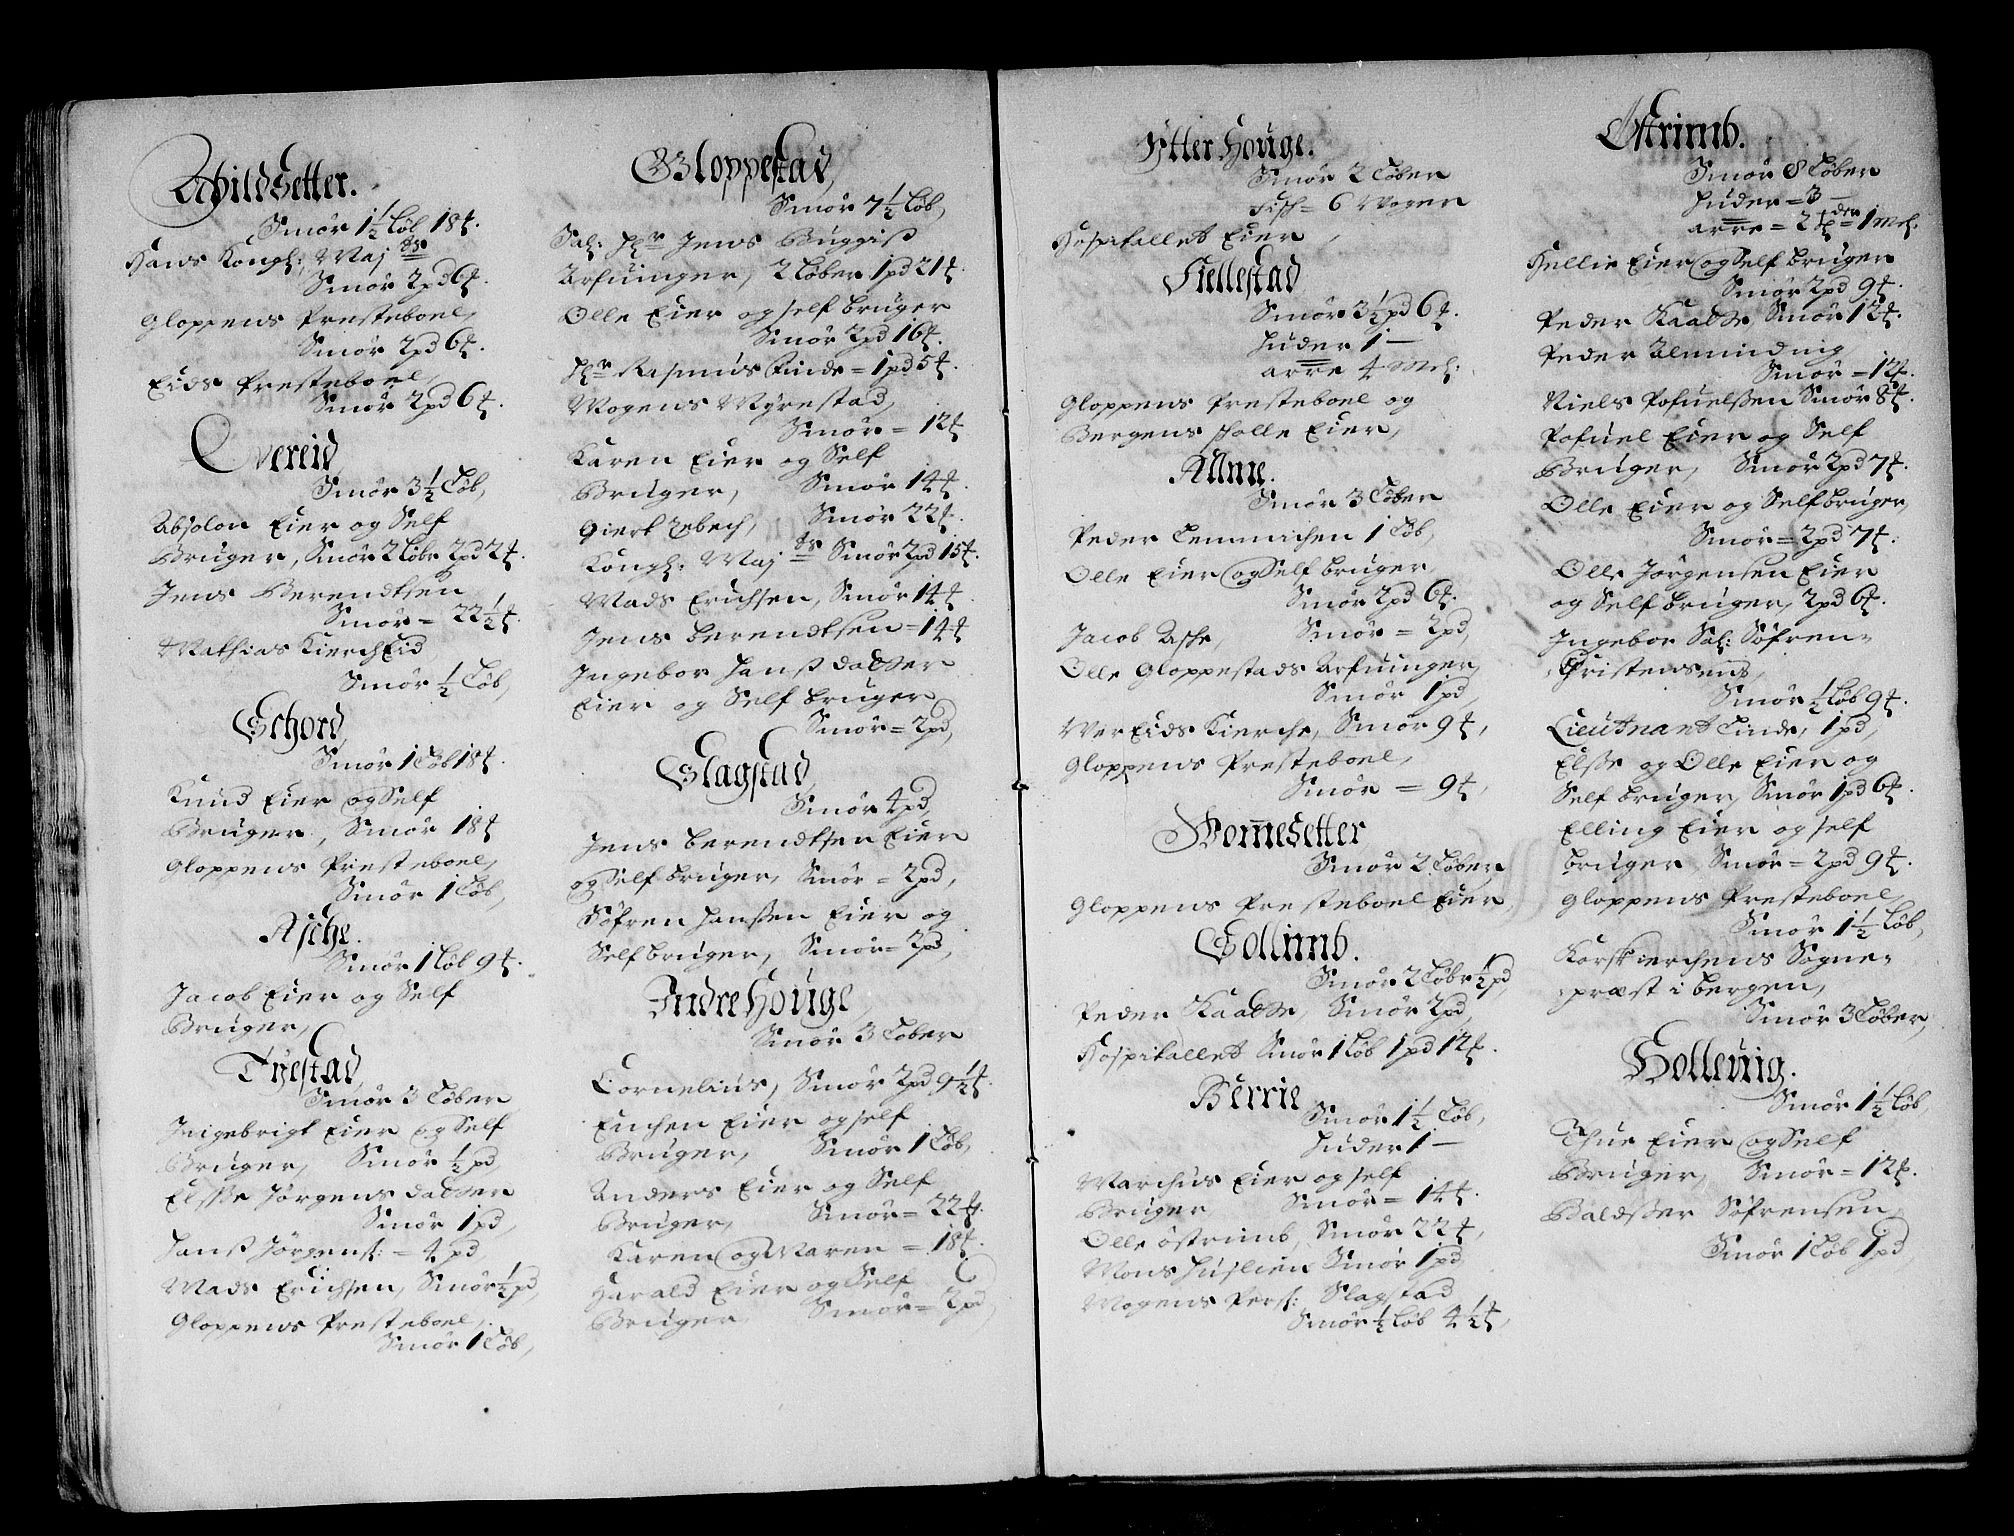 Smør 1½ Løb 18 ƚ.
Hans Kongl: Maj ds
Smør 2 pd 6 ƚ.
Gloppens Presteboel,
Smør 2 pd 6 ƚ.
Eids Presteboel,
Smør 2 pd 6 ƚ.
Overeid,
Smør 3½ Løb,
Absolon Eier og Self
Bruger, Smør 2 Løbr 2 pd 2 ƚ.
Jens Berendtsen
Smør = 22½ ƚ.
Mathias KierchEid
Smør ½ Løb,
Echord,
Smør 1 Løb 18 ƚ.
Knud Eier og Self
Bruger, Smør 18 ƚ
Gloppens Presteboel,
Smør 1 Løb,
Asche.
Smør 1 Løb 9 ƚ.
Jacob Eier og Self
Bruger,
Tystad,
Smør 3 Løber
Ingebrigt Eier og Self
Bruger, Smør ½ pd,
Elsse Jørgens datter
Smør 1 pd,
Hans Jørgens: = 4 pd,
Mads Erichsen, Smør ½ pd,
Gloppens Presteboel,
Smør 1 Løb,
Gloppestad,
Smør 7½ Løb,
Sal: Hr Jens Buggis
Arfuinger, 2 Løber 1 pd 21 ƚ.
Olle Eier og self bruger
Smør 2 pd 16 ƚ.
Hr Rasmus Finde = 1 pd 5 ƚ.
Mogens Myrestad,
Smør = 12 ƚ
Karen Eier og Self
Bruger, Smør 14 ƚ.
Giert, Smør 22 ƚ.
Kongl: Maj ds Smør 2 pd 15 ƚ.
Mads Erichsen, Smør 14 ƚ.
Jens Berendtsen = 14 ƚ
Ingebor Hans datter
Eier og Self bruger
Smør = 2 pd,
Slagstad,
Smør 4 pd,
Jens Berendtsen Eier
og Self bruger, Smør = 2 pd,
Søfren Hanssen Eier og
Self bruger, Smør = 2 pd,
Indre Houge,
Smør 3 Løber
Cornelius, Smør 2 pd 9½ ƚ.
Enchen Eier og self
Bruger, Smør 1 Løb,
Anders Eier og Self
Bruger, Smør = 22 ƚ.
Karen og Maren = 18 ƚ.
Harald Eier og Self
Bruger Smør = 2 pd,
Ytter Houge.
Smør 2 Løber
Fisch = 6 Woger
Hospitallet Eier,
Fiellestad
Smør 3½ pd 6 ƚ.
Huder 1 —
arre 4 Mel:
Gloppens Presteboel og
Bergens scholle Eier,
Alme.
Smør 3 Løber
Peder Lemmichen 1 Løb,
Olle Eier og Self bruger,
Smør 2 pd 6 ƚ.
Jacob Asche, Smør = 2 pd,
Olle Gloppestads Arfuinger,
Smør 1 pd,
Wer Eids Kierche, Smør 9 ƚ,
Gloppens Presteboel,
Smør = 9 ƚ,
Wommesetter
Smør 2 Løber,
Gloppens Presteboel Eier,
Sollimb.
Smør 2 Løbr ½ pd,
Peder Kaadsse, Smør 2 pd,
Hospitallet Smør 1 Løb 1 pd 12 ƚ.
Berrie
Smør 1½ Løb,
Huder 1 —
Marchus Eier og self
Bruger Smør = 14 ƚ.
Olle Østrimb, Smør 22 ƚ,
Mons Huslien Smør 1 pd
Mogens Pers: Slagstad
Smør ½ Løb 4½ ƚ,
Østrimb.
Smør 8 Løber
Huder = 3 —
arre = 2 tder = 1 Mel.
Hellie Eier og Self bruger
Smør 2 pd 9 ƚ.
Peder Kaadsse, Smør 12 ƚ.
Peder
Smør = 12 ƚ.
Niels Pofuelssen Smør 8 ƚ.
Pofuel Eier og Self
Bruger, Smør 2 pd 7 ƚ.
Olle Eier og Self bruger,
Smør = 2 pd 7 ƚ.
Olle Jørgensen Eier
og Self bruger, 2 pd 6 ƚ.
Ingebor Sal: Søfren=
Christensens,
Smør ½ Løb 9 ƚ.
Lieutnant Linde, 1 pd,
Elsse og Olle Eier og
Self bruger, Smør 1 pd 6 ƚ.
Elling Eier og self
bruger Smør = 2 pd 9 ƚ.
Gloppens Presteboel,
Smør 1½ Løb,
Korskierchens Sogne=
præst i Bergen,
Smør 3 Løber,
Holleuig.
Smør 1½ Løb,
Thue Eier og Self
Bruger, Smør = 12 ƚ.
Baldsser Søfrensen,
Smør 1 Løb 1 pd